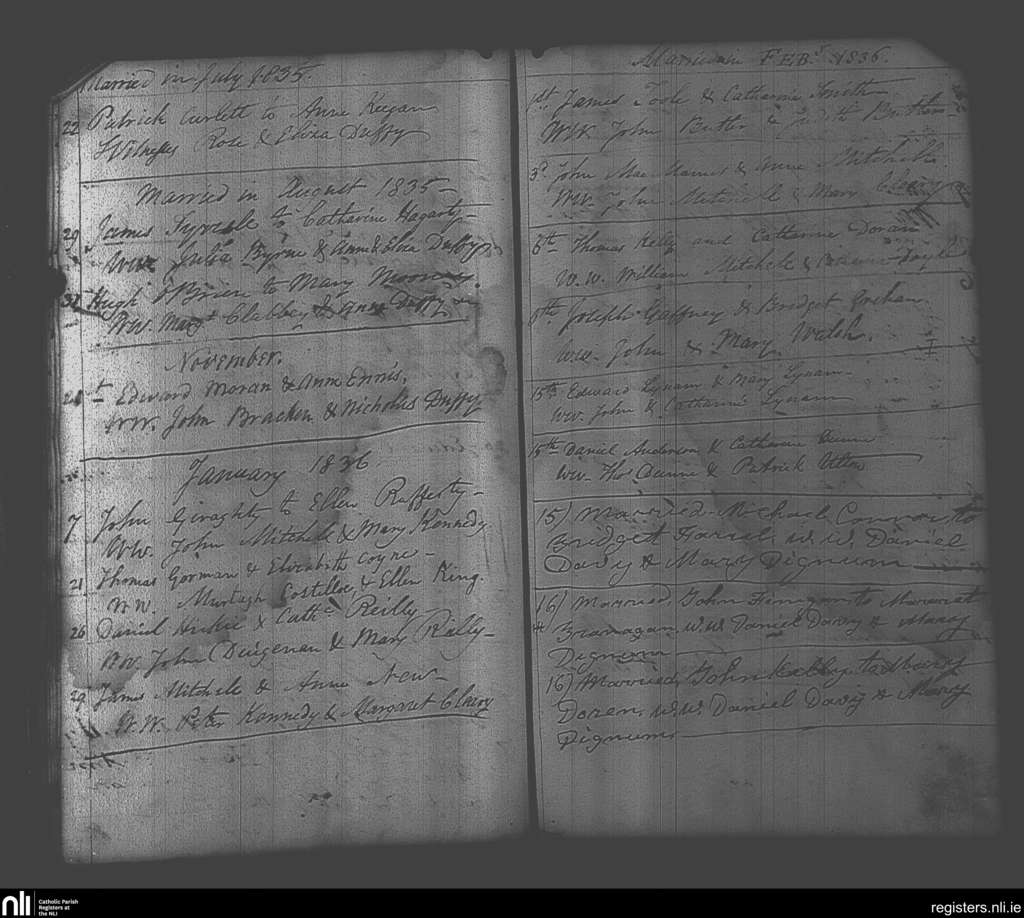 Married in July 1835.
22 Patrick Curlett to Anne Keegan
Witnesses Rose & Eliza Duffy
Married in August 1835
29 James Tyrrele to Catharine Hagarty
WW. Julia Byrne & Anne & Eliza Duffy
31 Hugh O'Brien to Mary Mooney.
WW. Mary Clabbey & Anne Duffy
November.
Edward Moran & Ann Ennis.
WW. John Bracken & Nicholas Duffy
January 1836
7 John Giraghty to Ellen Rafferty
WW. John Mitchele & Mary Kennedy
21 Thomas Gorman & Elizabeth Coyne
WW. Murtagh Costilloe, & Ellen King.
26 Daniel Hickie & Cathe Reilly
WW. John Duigenan & Mary Rielly
29 James Mitchele & Anne New
W.W. Peter Kennedy & Margaret Clhery
Married in FEBy 1836.
1st James Toole & Catharine Smith
WW. John Butler & Judith Butler
3d John Mac Manus & Anne Mitchell
WW. John Mitchele & Mary
8th Thomas Kelly and Catharine Doran
W.W. William Mitchele &
8th Joseph Gaffney & Bridget Grehan
WW. John & Mary Walsh.
15th Edward Lynam & Mary Lynam
WW. John & Catharine Lynam
15th Daniel Anderson & Catharine Dunne
WW. Thos Dunne & Patrick
15) Married. Michael Connor, to
Bridget Farrel, W.W. Daniel
Davy & Mary Dignum
16) Married, John Finegan to Margaret
Branagan. W.W. Daniel Davy & Mary
Dignum
16) Married, John Kelly to Mary
Doren. W.W. Daniel Davy & Mary
Dignum
nli Catholic Parish
Registers at
the NLI
registers.nli.ie